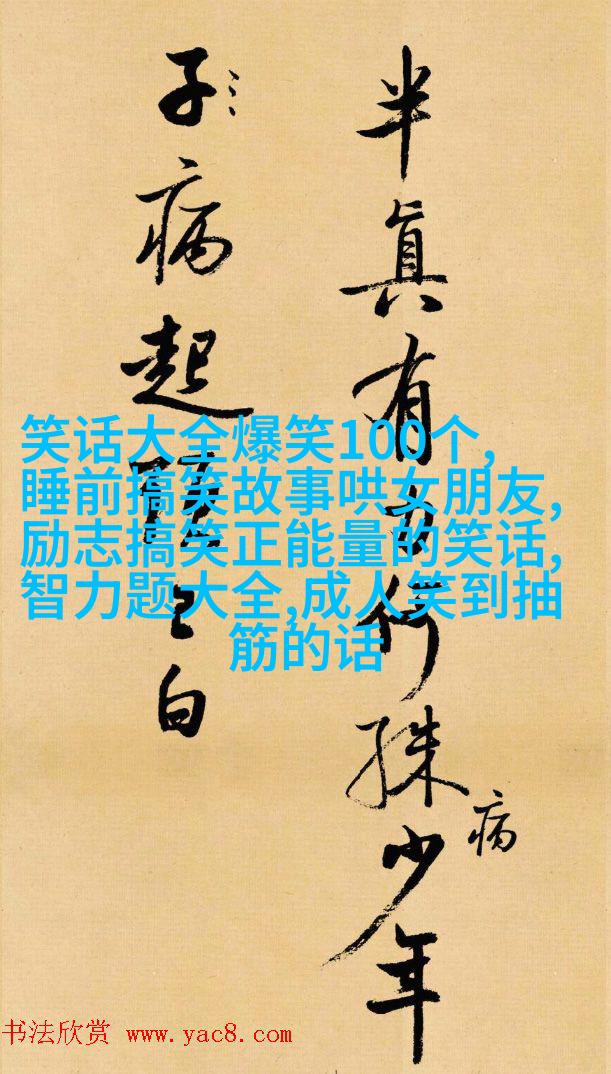 半眞有力何殊少年
病
子病起已白
笑话大全爆笑100个,
睡前搞笑故事哄女朋友,
励志搞笑正能量的笑话,
智力题大全,成人笑到抽
筋的话
书法欣赏 www.yac8.com